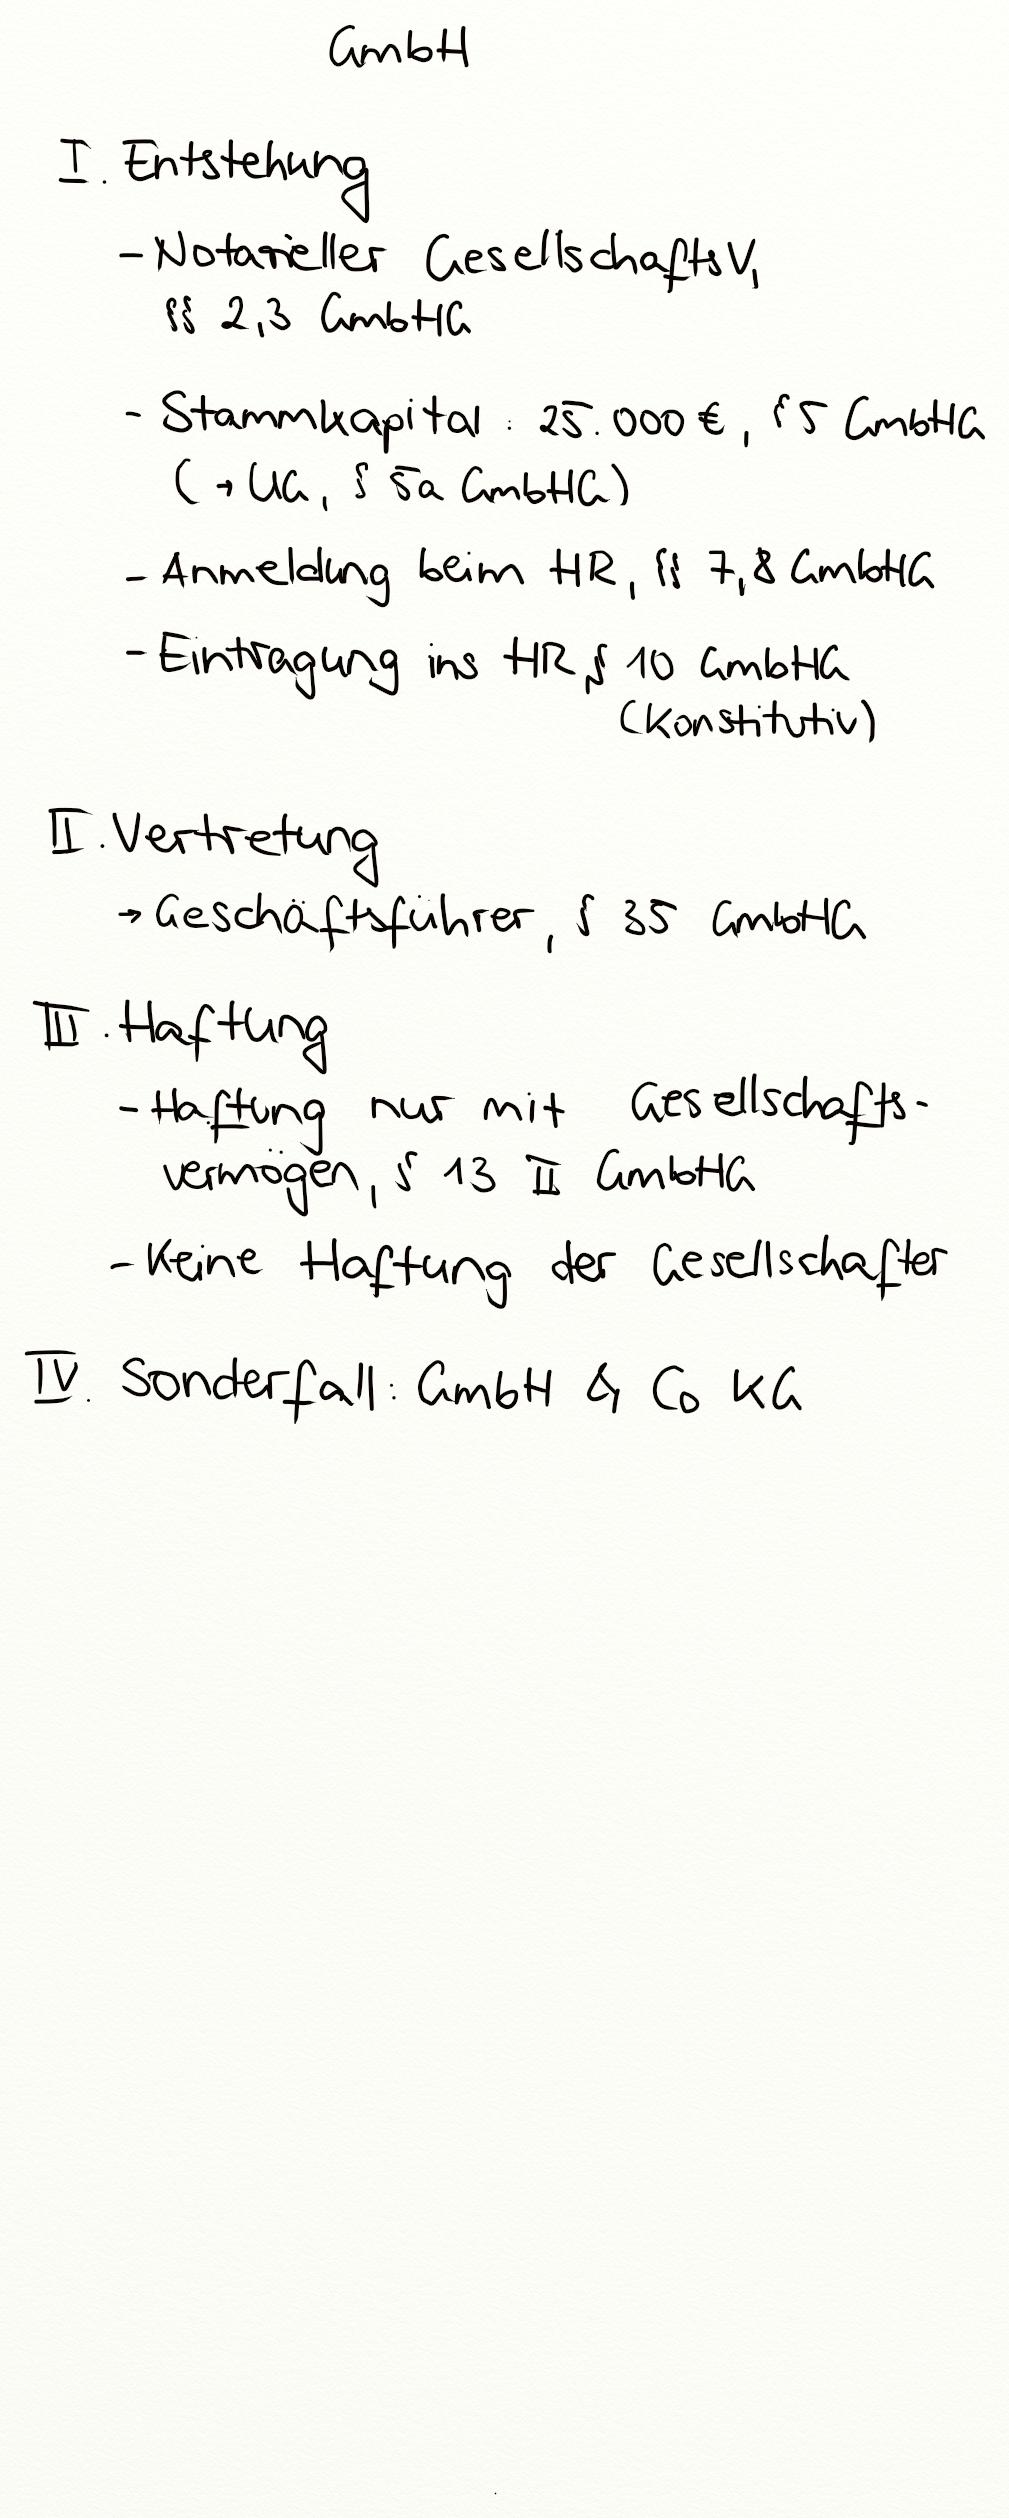 GmbH
I. Entstehung
- Notarieller GesellschaftsV,
§§ 2,3 GmbHG
- Stammkapital: 25.000€, § 5 GmbHG
(→ UG, § 5a GmbHG)
- Anmeldung beim HR, §§ 7,8 GmbHG
- Eintragung ins HR § 10 GmbHG
(Konstitutiv)
II. Vertretung
→ Geschäftsführer, § 35 GmbHG
III. Haftung
- Haftung nur mit Gesellschafts-
vermögen, § 13 II GmbHG
- Keine Haftung der Gesellschafter
IV. Sonderfall: GmbH & Co KG